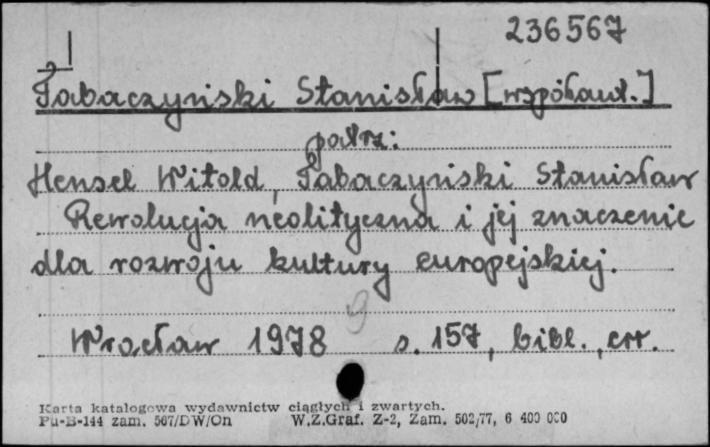 236567
Tabaczyński Stanisław [współaut.]
patrz:
Hensel Witold, Tabaczyński Stanisław
Rewolucja neolityczna i jej znaczenie
dla rozwoju kultury europejskiej.
9
Wrocław 1978 s. 157, bibl., err.
Karta katalogowa wydawnictw ciągłych i zwartych.
Pu-B-144 zam. 567/DW/On W.Z.Graf. Z-2, Zam. 502/77, 6 400 000